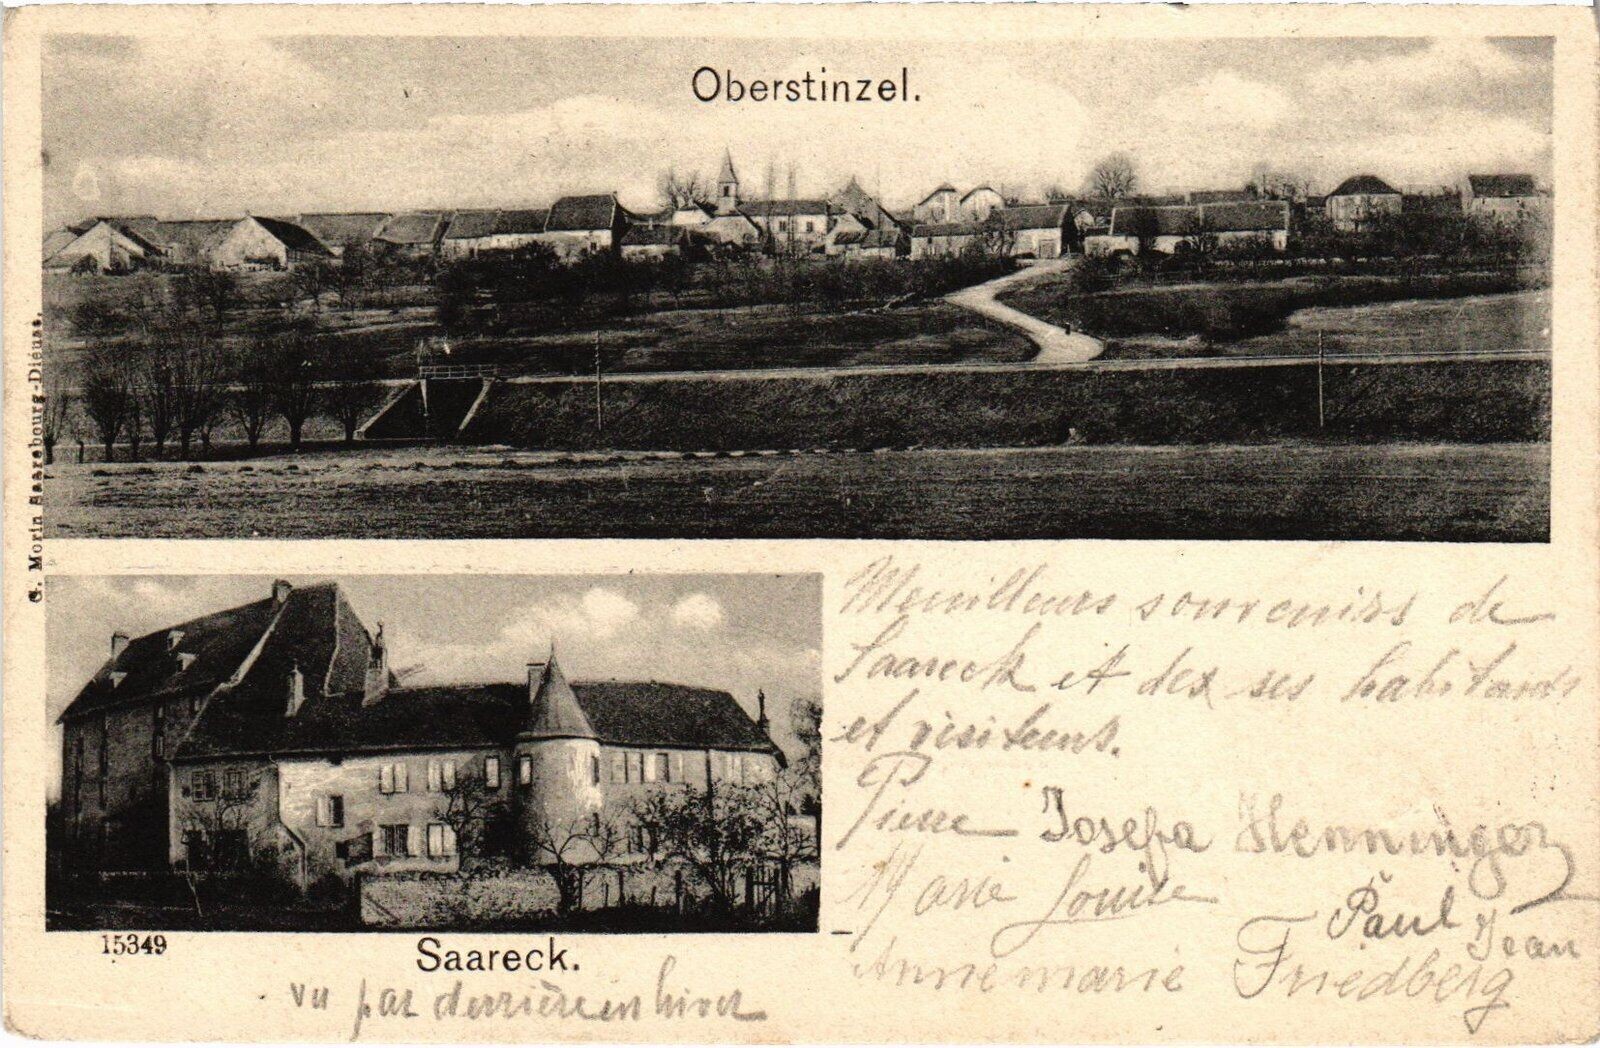 Oberstinzel.
G. Morin Saarebourg-Dieuse.
Meuilleurs souvenirs de
Saareck et des ses habitants
et visiteurs.
Pierre Josefa Henninger
Marie Louise
Paul Jean
Annemarie Friedberg
15349
Saareck.
vu par derrière en hiver